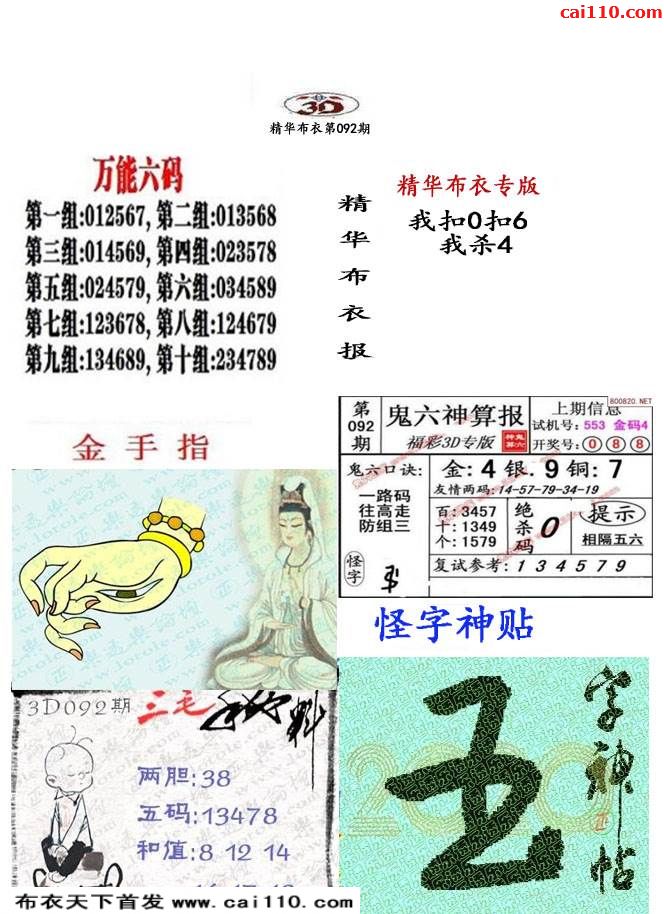 cai110.com
3D
精华布衣第092期
万能六码
第一组:012567, 第二组:013568
第三组:014569, 第四组:023578
第五组:024579, 第六组:034589
第七组:123678, 第八组:124679
第九组:134689, 第十组:234789
精华布衣报
精华布衣专版
我扣0扣6
我杀4
金手指
第092期
鬼六神算报
福彩3D专版
上期信息
800820.NET
试机号: 553 金码4
开奖号: 0 8 8
鬼六口诀:
一路码
往高走
防组三
怪字
金: 4 银. 9 铜: 7
友情两码: 14-57-79-34-19
百: 3457
十: 1349
个: 1579
绝杀码
0
提示
相隔五六
复试参考: 1 3 4 5 7 9
怪字神贴
3D092期
三毛
两胆:38
五码:13478
和值:8 12 14
字神帖
布衣天下首发 www.cai110.com